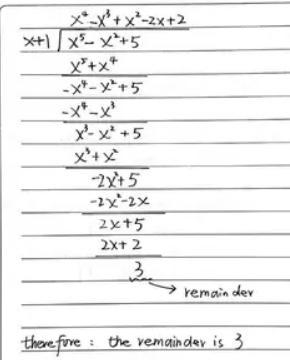 x⁴-x³+x²-2x+2
x+1 x⁵-x²+5
x⁵+x⁴
-x⁴-x²+5
-x⁴-x³
x³-x²+5
x³+x²
-2x²+5
-2x²-2x
2x+5
2x+2
3
→ remainder
therefore : the remainder is 3